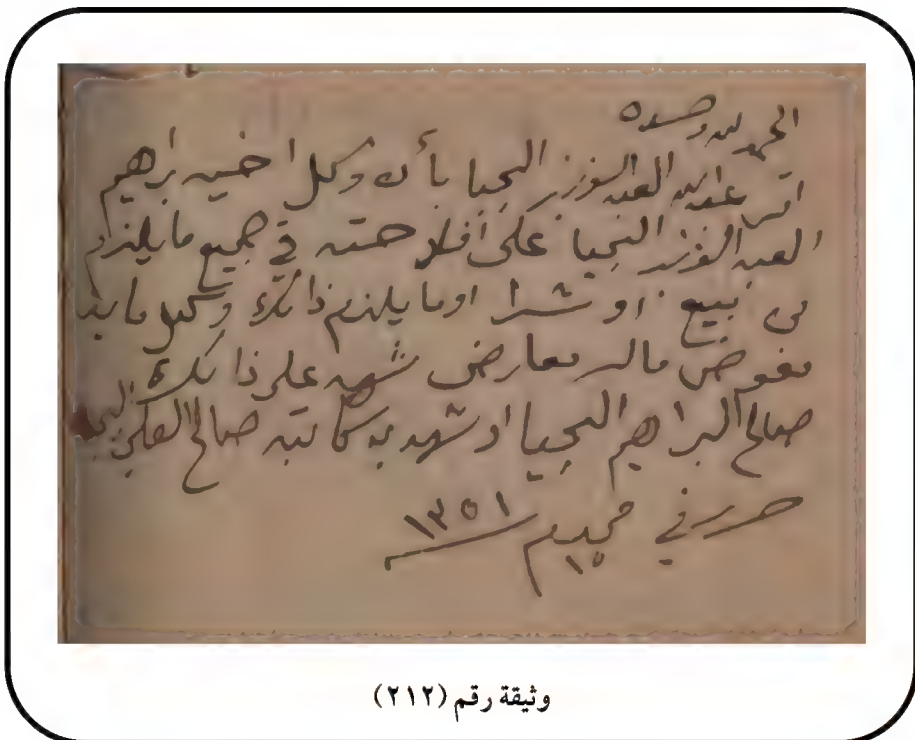 الحمد لله وحده
اقر عبد الله العبد العزيز اليحيا بأن وكل اخيه براهيم
العبد العزيز اليحيا على أفلاحته في جميع ما يلزم
من بيع او شرا او ما يلزم ذالك وكيل
مفوض ماله معارض شهد على ذالك
صالح البراهيم اليحيا او شهد به كاتبه صالح العلي اليحيا
حرر في محرم ١٥ ١٣٥١
وثيقة رقم (٢١٢)